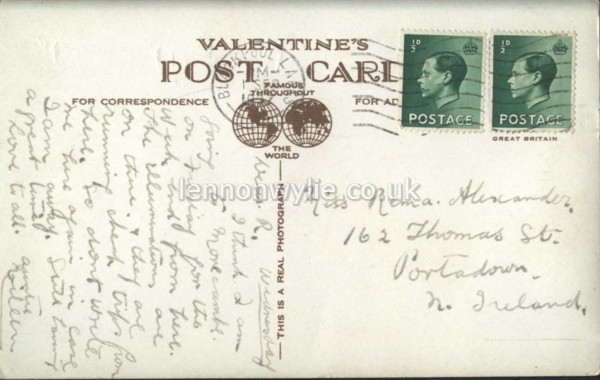 VALENTINE'S
POST CARD
FAMOUS
THROUGHOUT
THE
WORLD
FOR CORRESPONDENCE
FOR AD
GREAT BRITAIN
½D
POSTAGE
½D
POSTAGE
BLACKPOOL
THIS IS A REAL PHOTOGRAPH
lennonwylie.co.uk
Wednesday
Dear R.
I think I am
going to Morecambe
on Friday for the
week end from here.
The illuminations are
on there & they are
running cheap trips from
here. So don't write
me here again in case
I am away. Still having
a great time
Love to all
Miss Rema Alexander.
162 Thomas St.
Portadown.
N. Ireland.